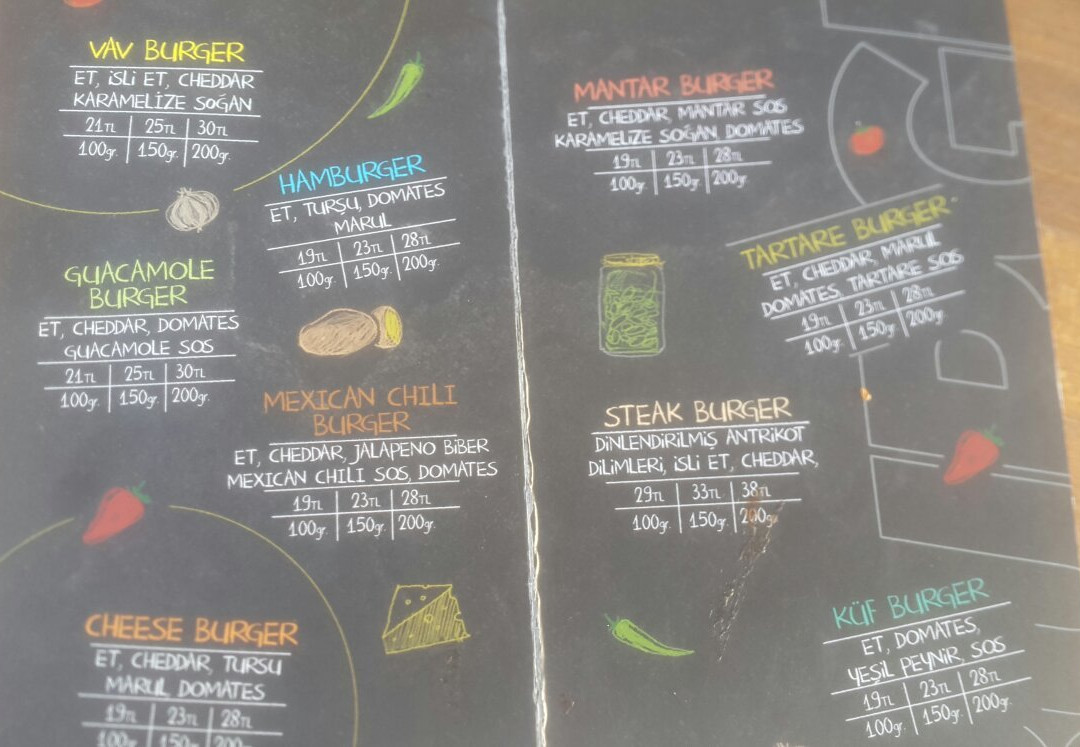 VAV BURGER
ET, İSLİ ET, CHEDDAR
KARAMELİZE SOĞAN
21TL 25TL 30TL
100gr. 150gr. 200gr.
HAMBURGER
ET, TURŞU, DOMATES
MARUL
19TL 23TL 28TL
100gr. 150gr. 200gr.
GUACAMOLE
BURGER
ET, CHEDDAR, DOMATES
GUACAMOLE SOS
21TL 25TL 30TL
100gr. 150gr. 200gr.
MEXICAN CHILI
BURGER
ET, CHEDDAR, JALAPENO BİBER
MEXICAN CHILI SOS, DOMATES
19TL 23TL 28TL
100gr. 150gr. 200gr.
CHEESE BURGER
ET, CHEDDAR, TURŞU
MARUL DOMATES
19TL 23TL 28TL
100gr. 150gr. 200gr.
MANTAR BURGER
ET, CHEDDAR, MANTAR SOS
KARAMELİZE SOĞAN, DOMATES
19TL 23TL 28TL
100gr. 150gr. 200gr.
TARTARE BURGER
ET, CHEDDAR, MARUL
DOMATES, TARTARE SOS
19TL 23TL 28TL
100gr. 150gr. 200gr.
STEAK BURGER
DİNLENDİRİLMİŞ ANTRİKOT
DİLİMLERİ, İSLİ ET, CHEDDAR,
29TL 33TL 38TL
100gr. 150gr. 200gr.
KÜF BURGER
ET, DOMATES,
YEŞİL PEYNİR, SOS
19TL 23TL 28TL
100gr. 150gr. 200gr.